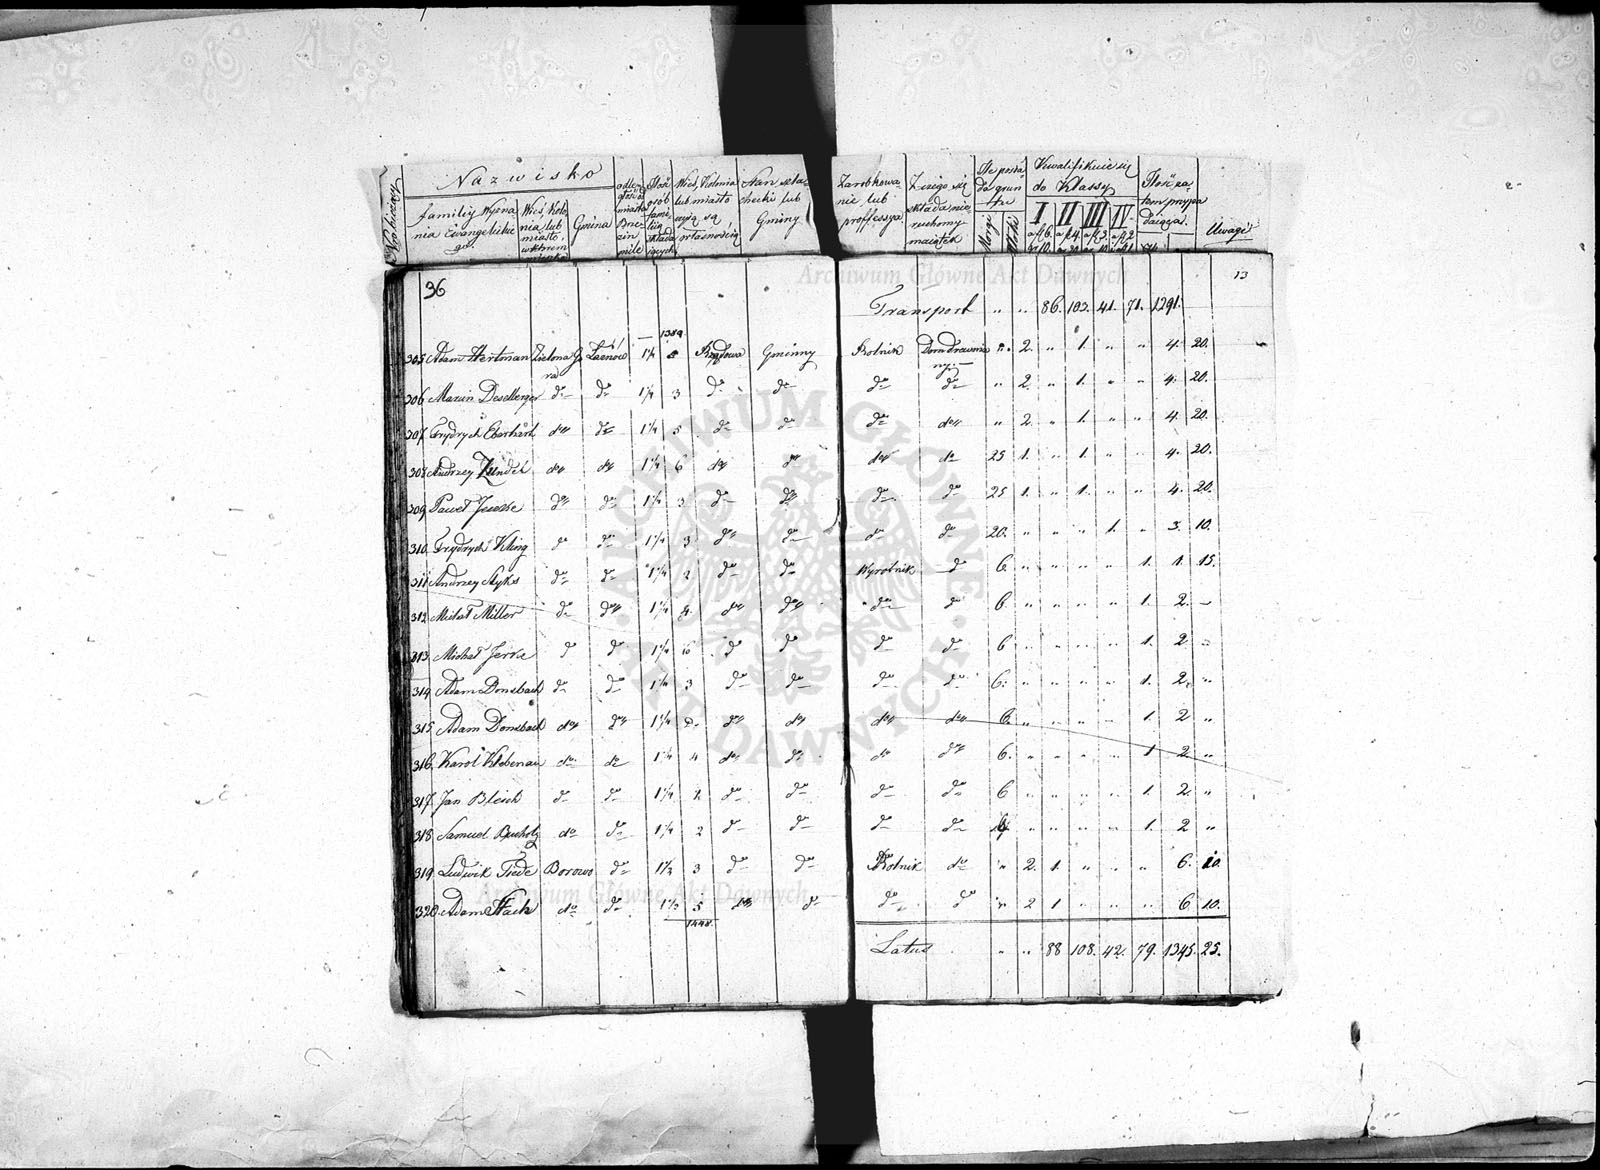 Nazwisko
familiy Wyzna
nia Ewangelickie
go
Wieś, Kolo
nia lub
miasto,
w którem
Gmina
odle
głość od
miasta
Brze
zin
mile
Ilość
osób
fami
lią
składa
iących
Wieś, Kolonia
lub miasto
czyją są
własnością
Stan szla
checki lub
Gminny
Zarobkowa
nie lub
proffessya
Z czego się
składa nie
ruchomy
maiątek
Ile posia
da grun
tu
Morgi
Włoki
Kwalifikuie się
do Klassy
I II III IV
Ilość za
tem przypa
daiąca
Uwagi
Archiwum Główne Akt Dawnych
36
13
Transport " " 86. 103. 41. 71. 1291.
1389
305 Adam Hertman Zielona Gó Łaznow 1¼ 5 Rządowa Gminny Rolnik Dom drewnia " 2. " 1. " " 4. 20.
ra
ny
306 Marcin Deselberger do do 1¼ 3 do do do do " 2. " 1. " " 4. 20.
307 Frydrych Eberhart do do 1¼ 5 do do do do " 2. " 1. " " 4. 20.
308 Andrzey Zundel do do 1¼ 6 do do do do 25 1. " 1. " " 4. 20.
309 Paweł Jeske do do 1¼ 3 do do do do 25 1. " 1. " " 4. 20.
310 Frydrych Kling do do 1¼ 3 do do do do 20. " " " 1. " 3. 10.
311 Andrzey do do 1¼ 2 do do Wyrobnik do 6. " " " " 1. 1. 15.
312 Michał Miller do do 1¼ 4. do do do do 6. " " " " 1. 2. -
313 Michał Jerke do do 1¼ 10 do do do do 6 " " " " 1. 2. "
314 Adam Donsbach do do 1¼ 3 do do do do 6. " " " " 1. 2. "
315. Adam Donsbach do do 1¼ do do do do 6. " " " " 1. 2 "
316. Karol Klebenau do do 1¼ 4 do do do do 6. " " " " 1 2. "
317. Jan Bleich do do 1¼ 2. do do do do 6 " " " " 1. 2. "
318. Samuel Bucholtz do do 1¼ 2 do do do do " " " " 1. 2 "
319. Ludwik Tiede Borowo do 1½ 3 do do Rolnik do " 2. 1. " " " 6. 10.
320. Adam Stach do do 1½ 5 do do do do " 2 1 " " " 6 10.
1448.
Latus " " 88 108. 42. 79. 1345. 25.
Archiwum Główne Akt Dawnych
ARCHIWUM GŁÓWNE AKT DAWNYCH